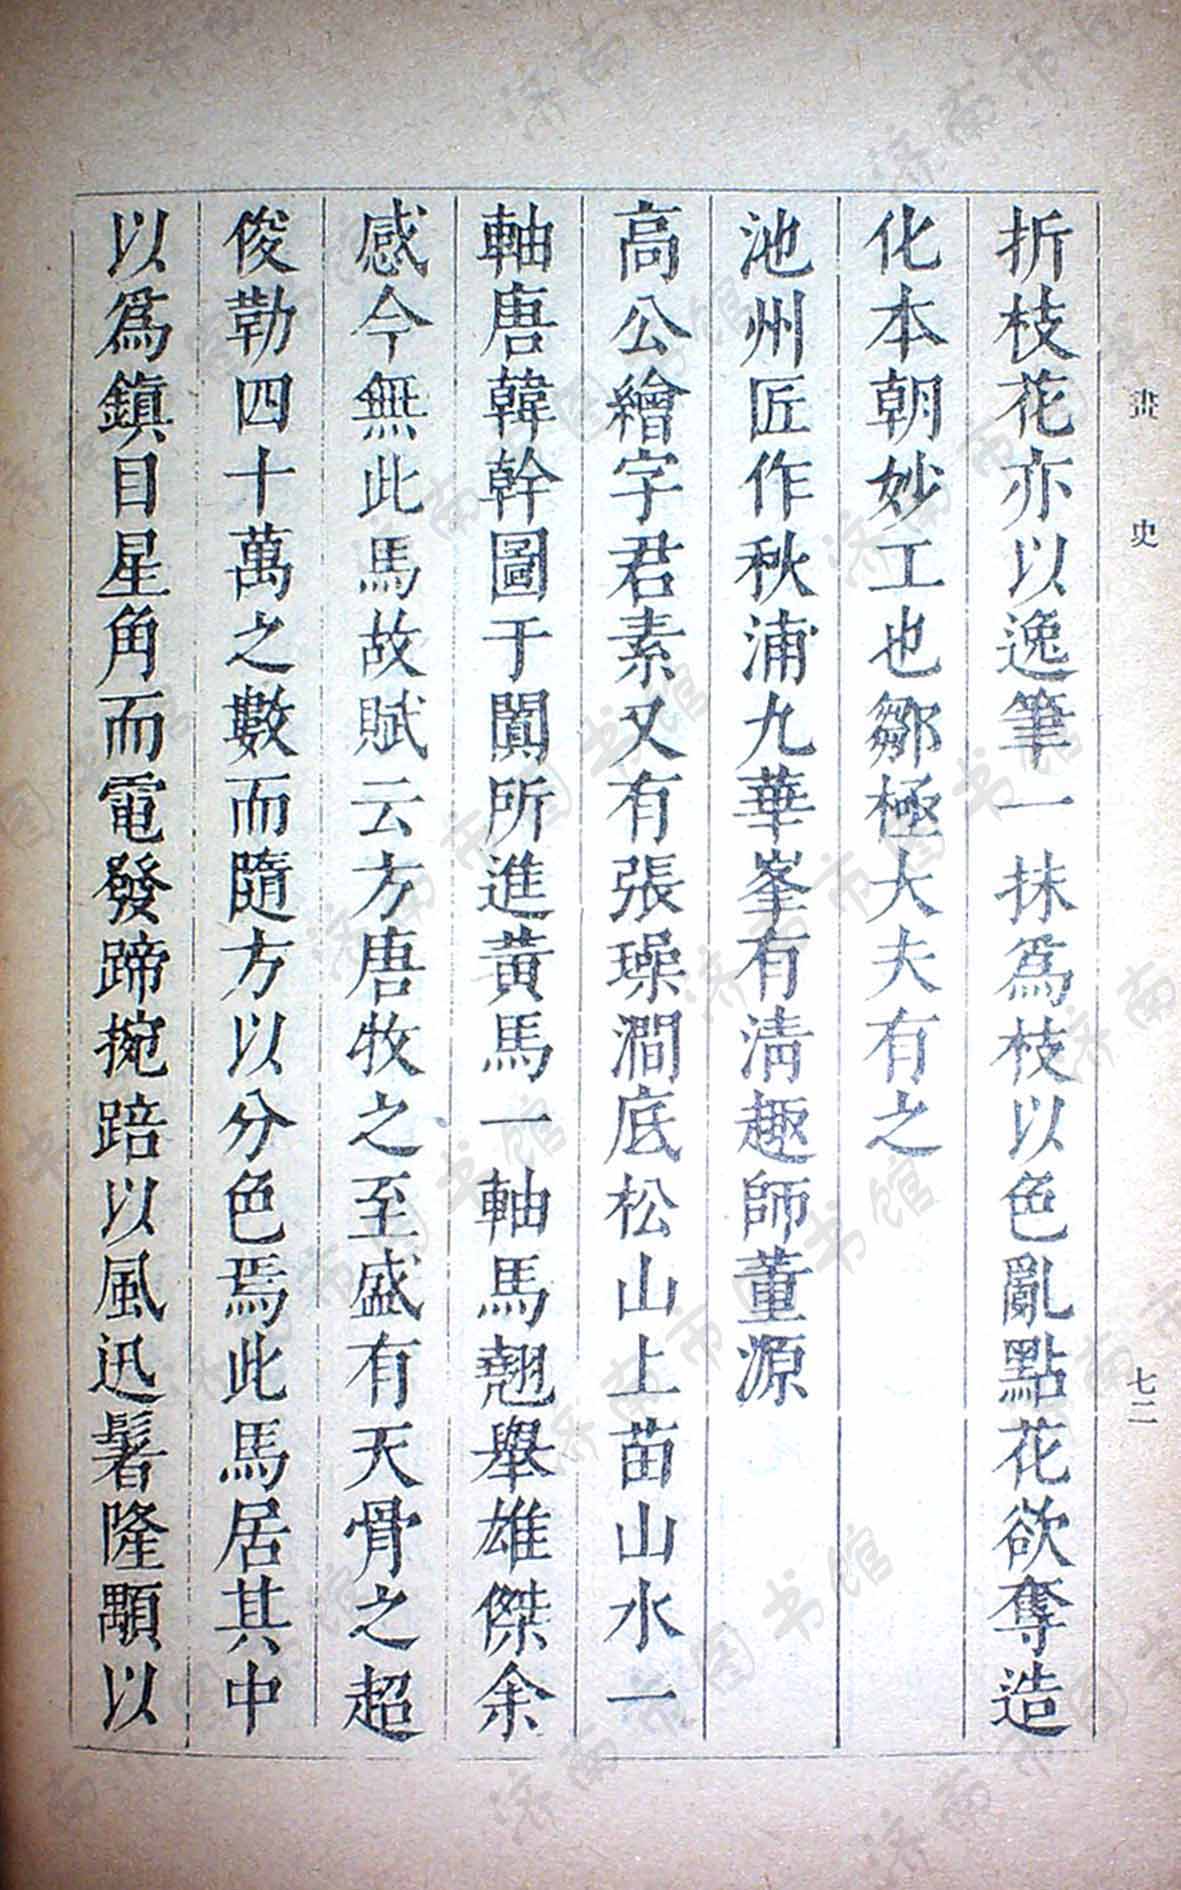 畫史 七二
折枝花亦以逸筆一抹爲枝以色亂點花欲奪造
化本朝妙工也鄒極大夫有之
池州匠作秋浦九華峯有淸趣師董源
高公繪字君素又有張璪澗底松山上苗山水一
軸唐韓幹圖于闐所進黃馬一軸馬翹舉雄傑余
感今無此馬故賦云方唐牧之至盛有天骨之超
俊勒四十萬之數而隨方以分色焉此馬居其中
以爲鎭目星角而電發蹄捥踣以風迅鬐隆顒以
济南市图书馆